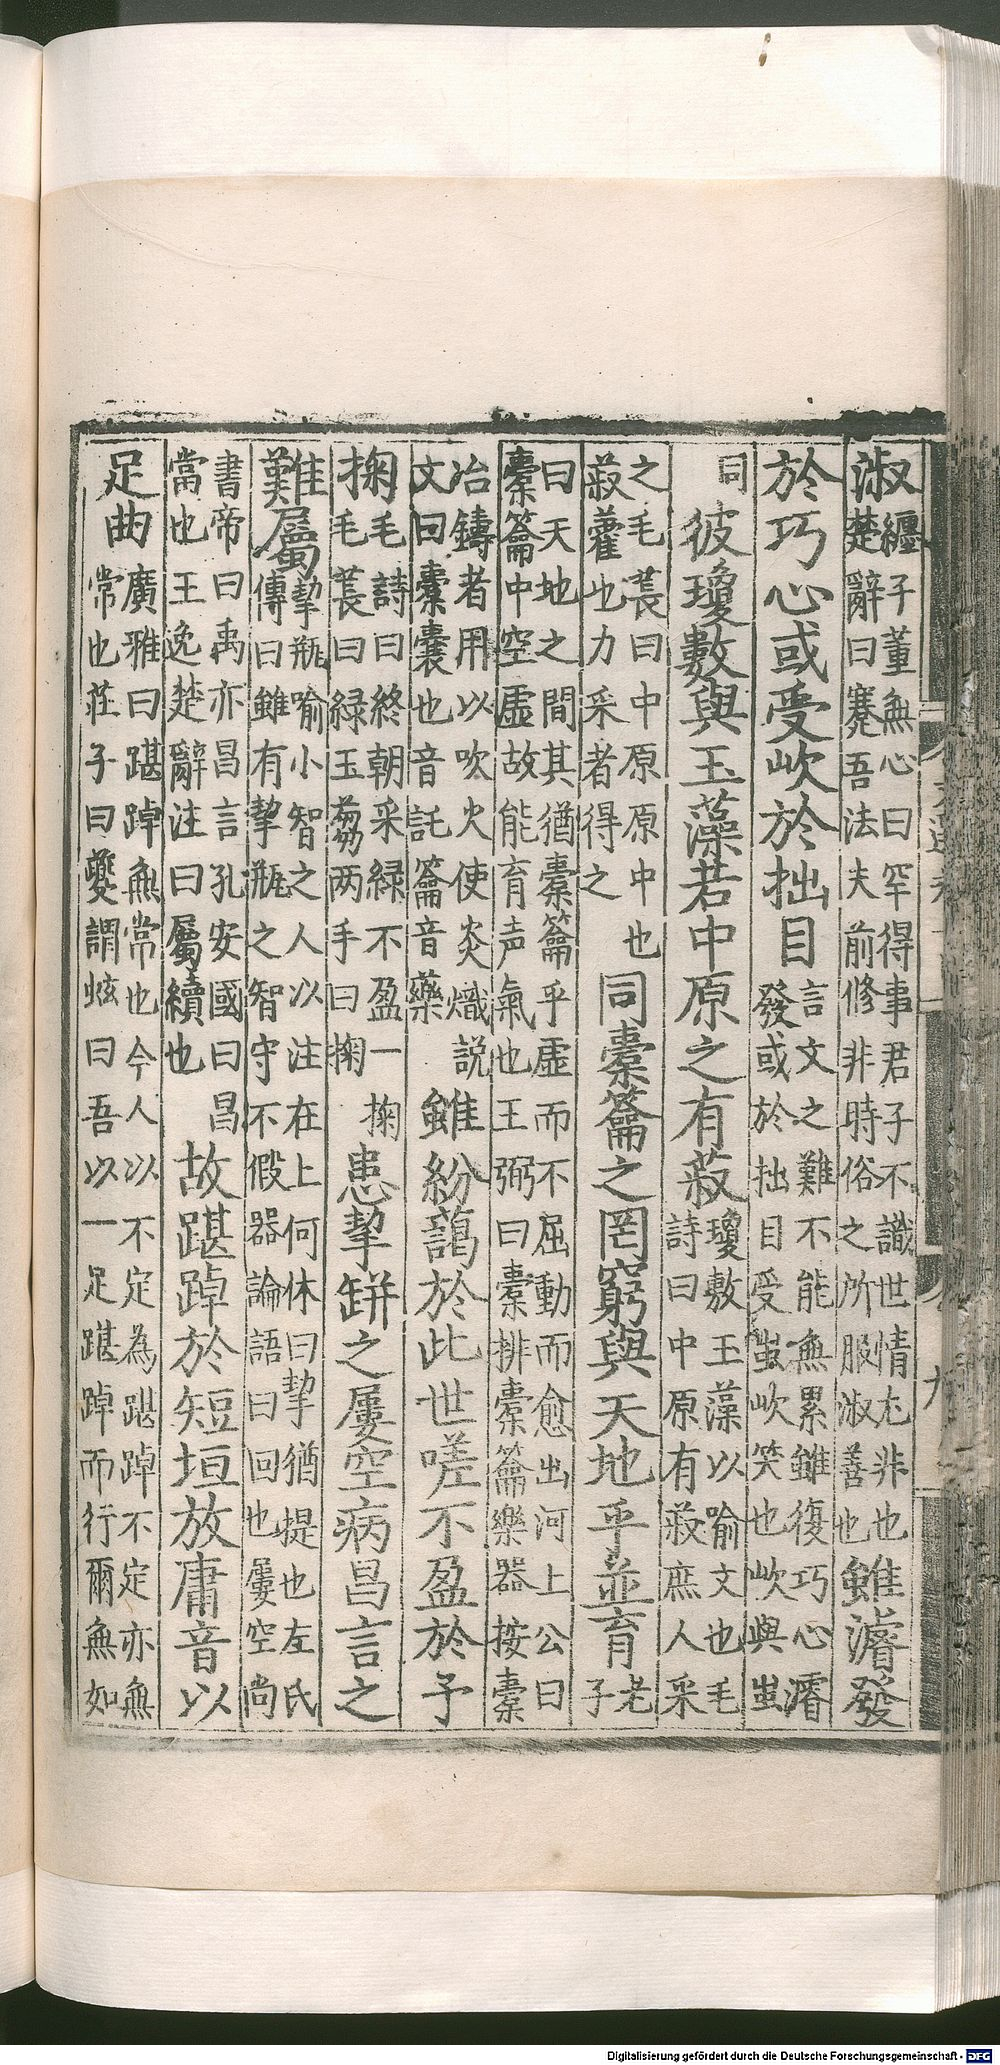 淑纏子董無心曰罕得事君子不識世情尤非也
楚辭曰謇吾法夫前修非時俗之所服淑善也雖濬發
於巧心或受㰞於拙目言文之難不能無累雖復巧心濬
發或於拙目受蚩㰞笑也㰞與蚩
同彼瓊敷與玉藻若中原之有菽瓊敷玉藻以喻文也毛
詩曰中原有菽庶人采
之毛萇曰中原原中也
菽藿也力采者得之同橐籥之罔窮與天地乎並育老
子
曰天地之間其猶橐籥乎虛而不屈動而愈出河上公曰
橐籥中空虛故能育声氣也王弼曰橐排橐籥樂器按橐
冶鑄者用以吹火使炎熾說
文曰橐囊也音託籥音藥雖紛藹於此世嗟不盈於予
掬毛詩曰終朝采緑不盈一掬
毛萇曰緑玉芻两手曰掬患挈缾之屢空病昌言之
難屬挈瓶喻小智之人以注在上何休曰挈猶提也左氏
傳曰雖有挈瓶之智守不假器論語曰回也屢空尚
書帝曰禹亦昌言孔安國曰昌
當也王逸楚辭注曰屬續也故踸踔於短垣放庸音以
足曲廣雅曰踸踔無常也今人以不定為踸踔不定亦無
常也莊子曰夔謂蚿曰吾以一足踸踔而行爾無如
九
Digitalisierung gefördert durch die Deutsche Forschungsgemeinschaft - DFG